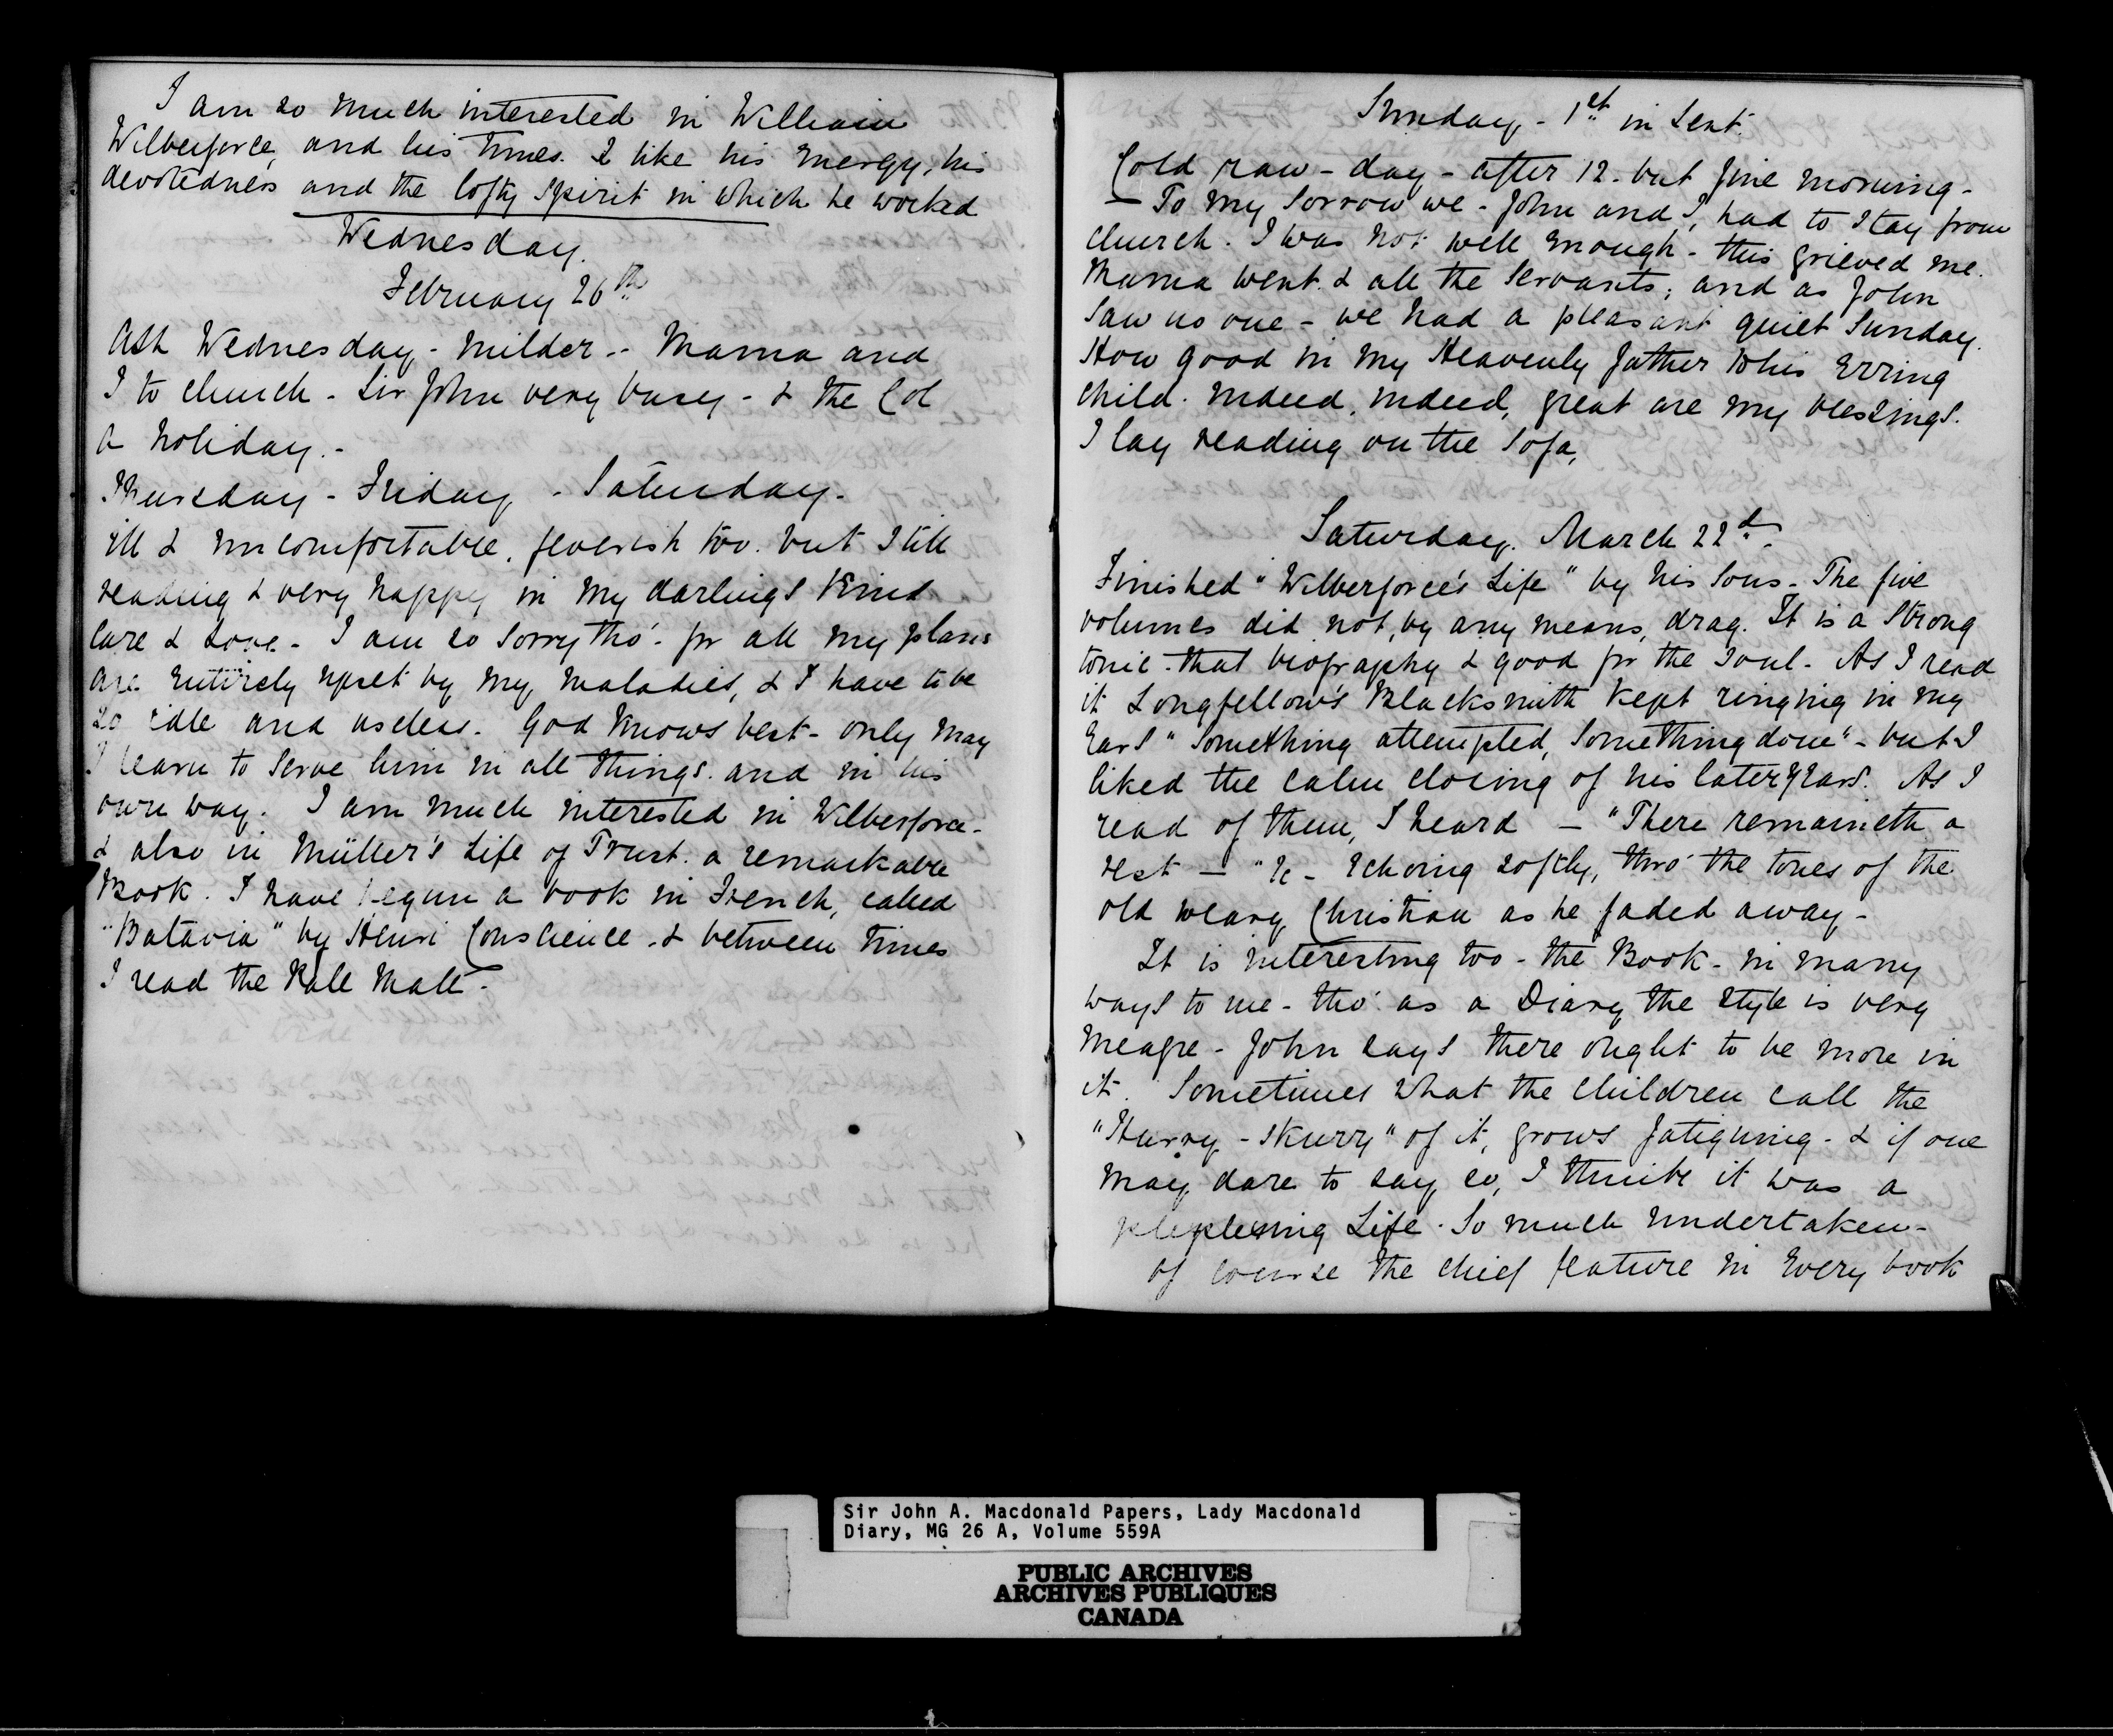 I am so much interested in William
Wilberforce, and his times. I like his energy, his
devotedness and the lofty spirit in which he worked
Wednesday.
February 26th
Ash Wednesday - milder - Mama and
I to church - Sir John very busy - & the Col
a holiday. -
Thursday - Friday - Saturday -
ill & uncomfortable, feverish too. but still
reading & very happy in my darlings kind
care & love - I am so sorry tho' - for all my plans
are entirely upset by my maladies, & I have to be
so idle and useless. God knows best - only may
I learn to serve him in all things. and in his
own way. I am much interested in Wilberforce -
& also in Müller's Life of Trust. a remarkable
Book. I have begun a book in French, called
"Batavia" by Henri Conscience - & between times
I read the Pall Mall -
Sunday - 1st in Lent.
Cold raw - day - after 12 - but fine morning -
- To my sorrow we - John and I, had to stay from
church. I was not well enough - this grieved me.
Mama went & all the servants; and as John
saw no one - we had a pleasant quiet Sunday.
How good is my Heavenly father to his Erring
child. Indeed, indeed, great are my blessings.
I lay reading on the Sofa,
Saturday. March 22d.
Finished "Wilberforce's Life" by his Sons - The five
volumes did not, by any means, drag. It is a Strong
tonic - that biography & good for the soul - As I read
it Longfellow's Blacksmith kept ringing in my
Ears "Something attempted, Something done" - but I
liked the calm closing of his later years. As I
read of them, I heard - "There remaineth a
rest - " &c - Echoing softly, thro' the tones of the
old weary Christian as he faded away -
It is interesting too - the Book - in many
ways to me - tho' as a Diary the style is very
meagre - John says there ought to be more in
it. Sometimes what the children call the
"Hurry - skurry" of it, grows fatiguing - & if one
may dare to say so, I think it was a
perplexing Life. So much undertaken -
of course the chief feature in Every book
Sir John A. Macdonald Papers, Lady Macdonald
Diary, MG 26 A, Volume 559A
PUBLIC ARCHIVES
ARCHIVES PUBLIQUES
CANADA